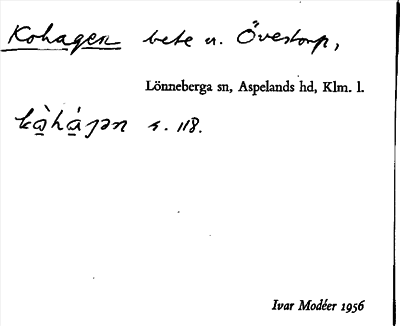 Kohagen bete u. Överstorp,
Lönneberga sn, Aspelands hd, Klm. l.
s. 118.
Ivar Modéer 1956